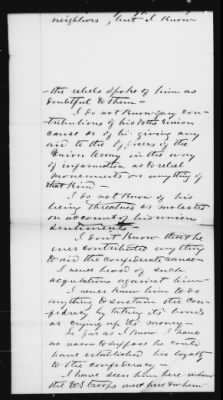 neighbors, but I know
the rebels spoke of him as
doubtful to them —
I do not know any con-
tributions of his to the Union
cause or of his giving any
aid to the officers of the
Union Army in the way
of information as to rebel
movements or anything of
that kind —
I do not know of his
being threatened or molested
on account of his union
sentiments
I don't know that he
ever contributed anything
to aid the confederate cause —
I never heard of such
against him —
I never knew him to do
anything to sustain the con-
federacy by taking its bonds
or crying up its money —
So far as I know I have
no reason to suppose he could
have established his loyalty
to the confederacy —
I have seen him here when
the US Troops were here when